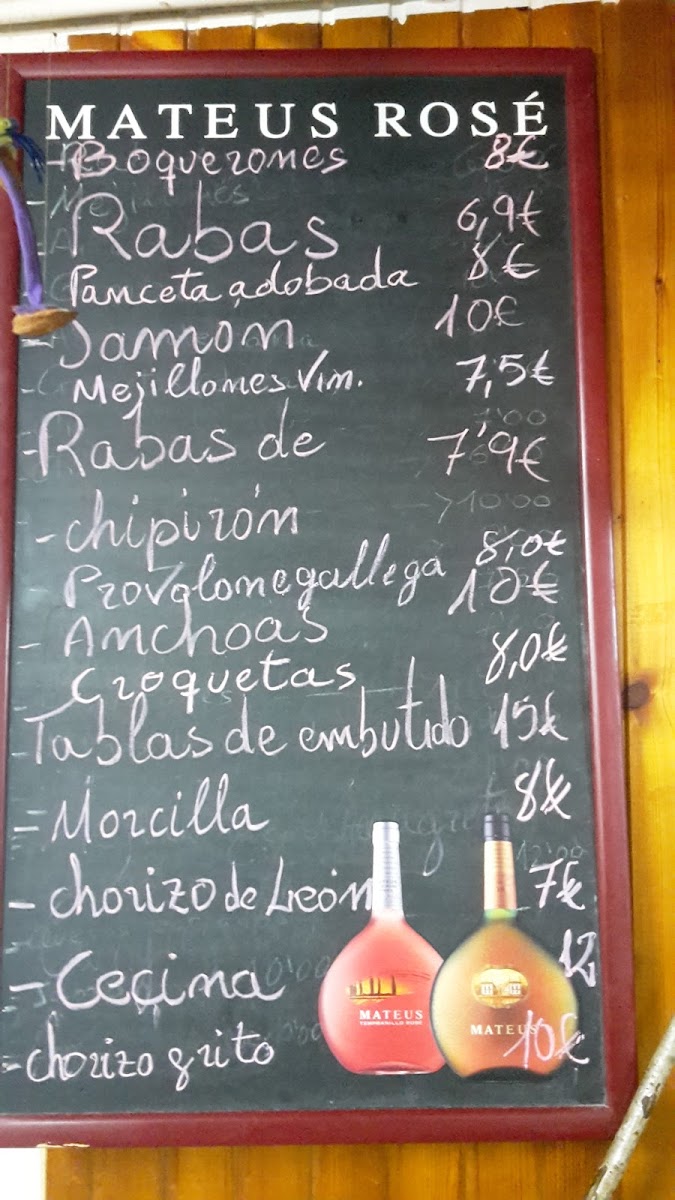 MATEUS ROSÉ
- Boquerones 8€
Rabas 6,9€
Panceta adobada 8€
- Jamon 10€
Mejillones Vin. 7,5€
- Rabas de 7'9€
- chipirón
Provolone gallega 8,0€
- Anchoas 10€
Croquetas 8,0€
Tablas de embutido 15€
- Morcilla 8€
- chorizo de León 7€
- Cecina 12
- chorizo grito 10€
MATEUS
TEMPRANILLO ROSÉ
MATEUS